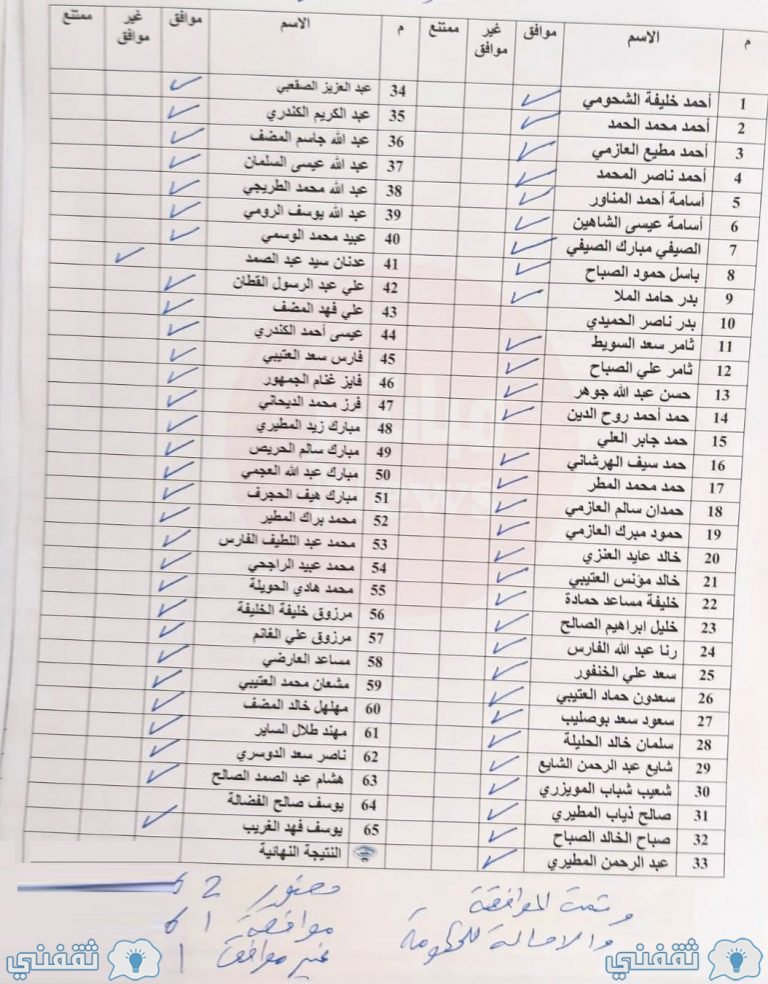 م الاسم موافق غير موافق ممتنع
1 أحمد خليفة الشحومي ✓
2 أحمد محمد الحمد ✓
3 أحمد مطيع العازمي ✓
4 أحمد ناصر المحمد ✓
5 أسامة أحمد المناور ✓
6 أسامة عيسى الشاهين ✓
7 الصيفي مبارك الصيفي ✓
8 باسل حمود الصباح ✓
9 بدر حامد الملا ✓
10 بدر ناصر الحميدي
11 ثامر سعد السويط ✓
12 ثامر علي الصباح ✓
13 حسن عبد الله جوهر ✓
14 حمد أحمد روح الدين ✓
15 حمد جابر العلي
16 حمد سيف الهرشاني ✓
17 حمد محمد المطر ✓
18 حمدان سالم العازمي ✓
19 حمود مبرك العازمي ✓
20 خالد عايد العنزي ✓
21 خالد مؤنس العتيبي ✓
22 خليفة مساعد حمادة ✓
23 خليل ابراهيم الصالح ✓
24 رنا عبد الله الفارس ✓
25 سعد علي الخنفور ✓
26 سعدون حماد العتيبي ✓
27 سعود سعد بوصليب ✓
28 سلمان خالد الحليلة ✓
29 شايع عبد الرحمن الشايع ✓
30 شعيب شباب المويزري ✓
31 صالح ذياب المطيري ✓
32 صباح الخالد الصباح ✓
33 عبد الرحمن المطيري ✓
م الاسم موافق غير موافق ممتنع
34 عبد العزيز الصقعبي ✓
35 عبد الكريم الكندري ✓
36 عبد الله جاسم المضف ✓
37 عبد الله عيسى السلمان ✓
38 عبد الله محمد الطريجي ✓
39 عبد الله يوسف الرومي ✓
40 عبيد محمد الوسمي ✓
41 عدنان سيد عبد الصمد ✓
42 علي عبد الرسول القطان ✓
43 علي فهد المضف ✓
44 عيسى أحمد الكندري ✓
45 فارس سعد العتيبي ✓
46 فايز غنام الجمهور ✓
47 فرز محمد الديحاني ✓
48 مبارك زيد المطيري ✓
49 مبارك سالم الحريص ✓
50 مبارك عبد الله العجمي ✓
51 مبارك هيف الحجرف ✓
52 محمد براك المطير ✓
53 محمد عبد اللطيف الفارس ✓
54 محمد عبيد الراجحي ✓
55 محمد هادي الحويلة ✓
56 مرزوق خليفة الخليفة ✓
57 مرزوق علي الغانم ✓
58 مساعد العارضي ✓
59 مشعان محمد العتيبي ✓
60 مهلهل خالد المضف ✓
61 مهند طلال الساير ✓
62 ناصر سعد الدوسري ✓
63 هشام عبد الصمد الصالح ✓
64 يوسف صالح الفضالة
65 يوسف فهد الغريب ✓
النتيجة النهائية
وتمت الموافقة
والاحالة للحكومة
حضور 62
موافقة 61
غير موافق 1
ثقفني
ثقفني